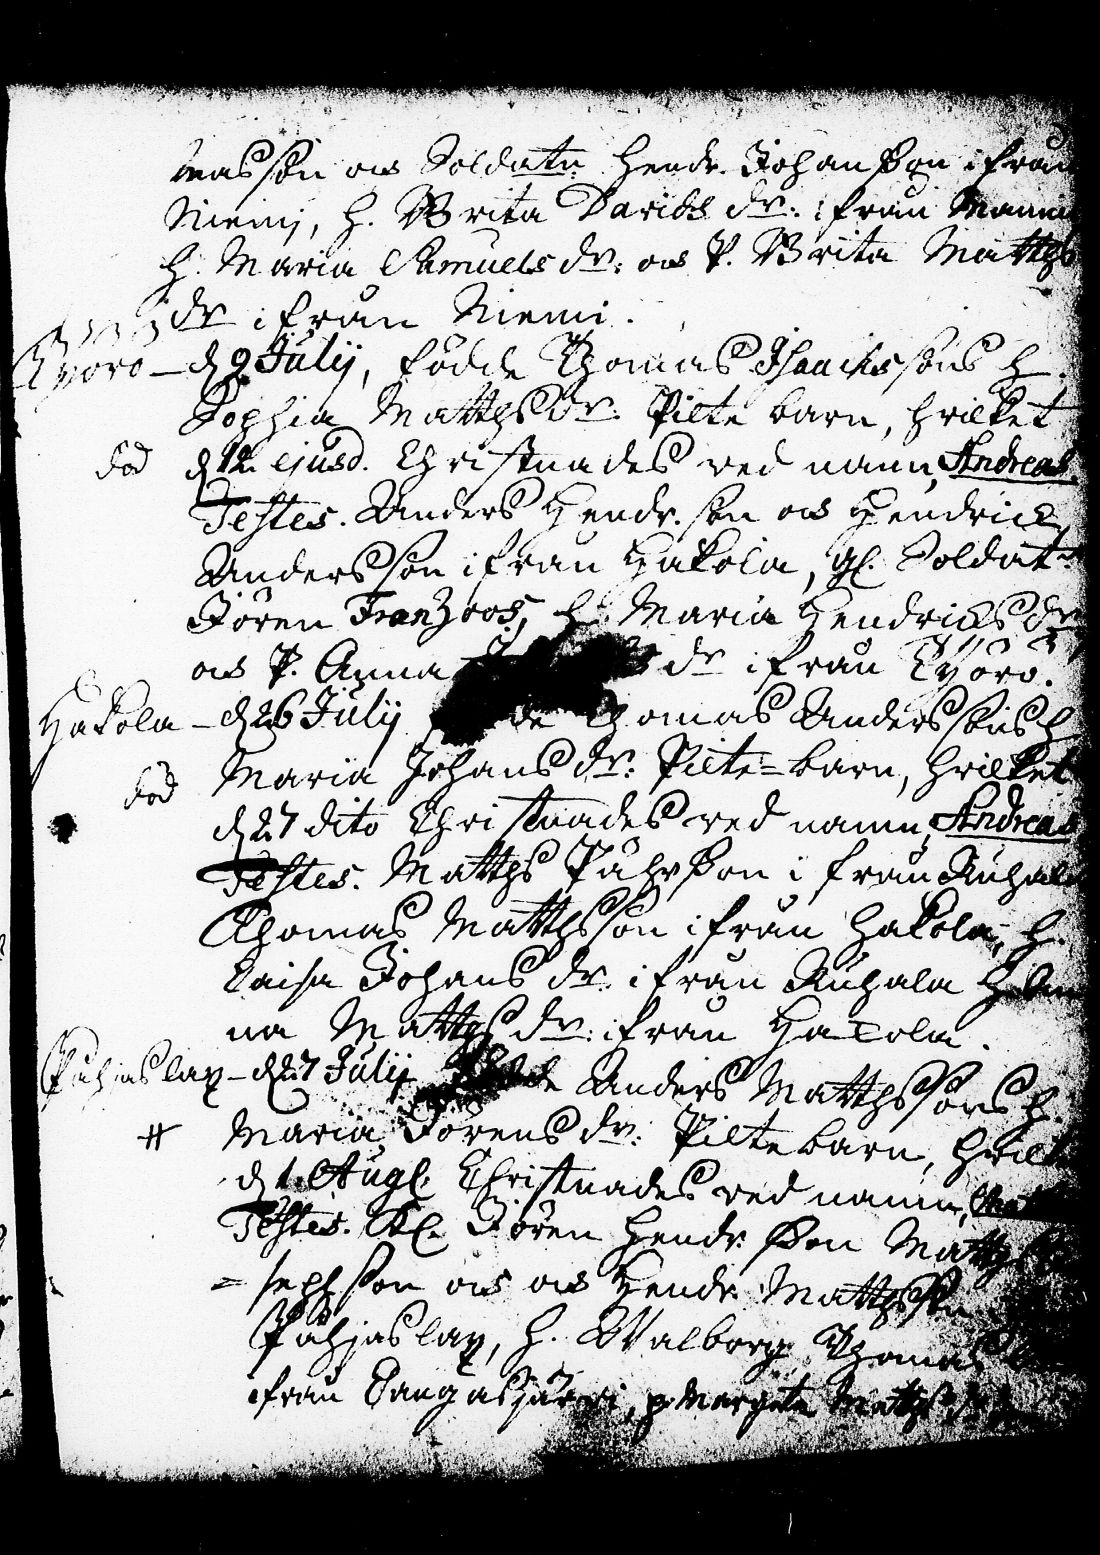 masson och Soldatn Hendr. Johansson ifrån
Niemj, H. Brita Davids dr: ifrån
H. Maria Samuels dr: och P. Brita Matths
dr ifrån Niemi.
Kyörö – d 9 Julij, födde Thomas Isaachssons H.
Sophia Matths dr: Pilte barn, hvilket
död d 12 ejusd. Christnades ved namn, Andreas.
Testes. Anders Hendr. son och Hendrich
Andersson ifrån Hakola, gl. Soldatn
Jören Franzoos, H. Maria Hendrichs dr
och P. Anna dr ifrån Kyörö.
Hakola – d 26 Julij Thomas Anderssons H
död Maria Johans dr: Pilte-barn, hvilket
d 27 dito Christnades ved namn, Andreas
Testes. Matths Påhrsson ifrån Ruhala
Thomas Matthsson ifrån Hakola, H.
Caisa Johans dr: ifrån Ruhala H. An
na Matths dr: ifrån Hakola.
Påhjaslax – d 27 Julij Anders Matthssons H.
# Maria Jörens dr: Pilte barn, hvilk
d 1. Aug. Christnades ved namn,
Testes. Jören Hendr. sson Matths
= sephsson och och Hendr. Matthsson
Påhjaslax, H. Walborg Thomas
ifrån Cangasjärvi, p. Margeta Matths